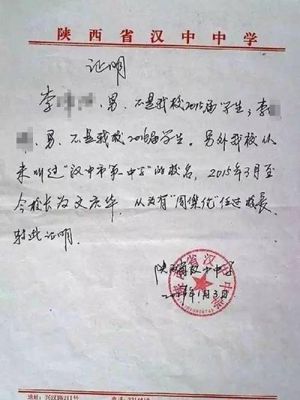 陕西省汉中中学
证明
李 ,男,不是我校2015届学生;李
,男,不是我校2016届学生。另外我校从
未叫过"汉中市第一中学"的校名,2015年3月至
今校长为文庆华,从没有"周伟优"任过校长。
特此证明。
陕西省汉中中学
1月3日
地址:兴汉路211号